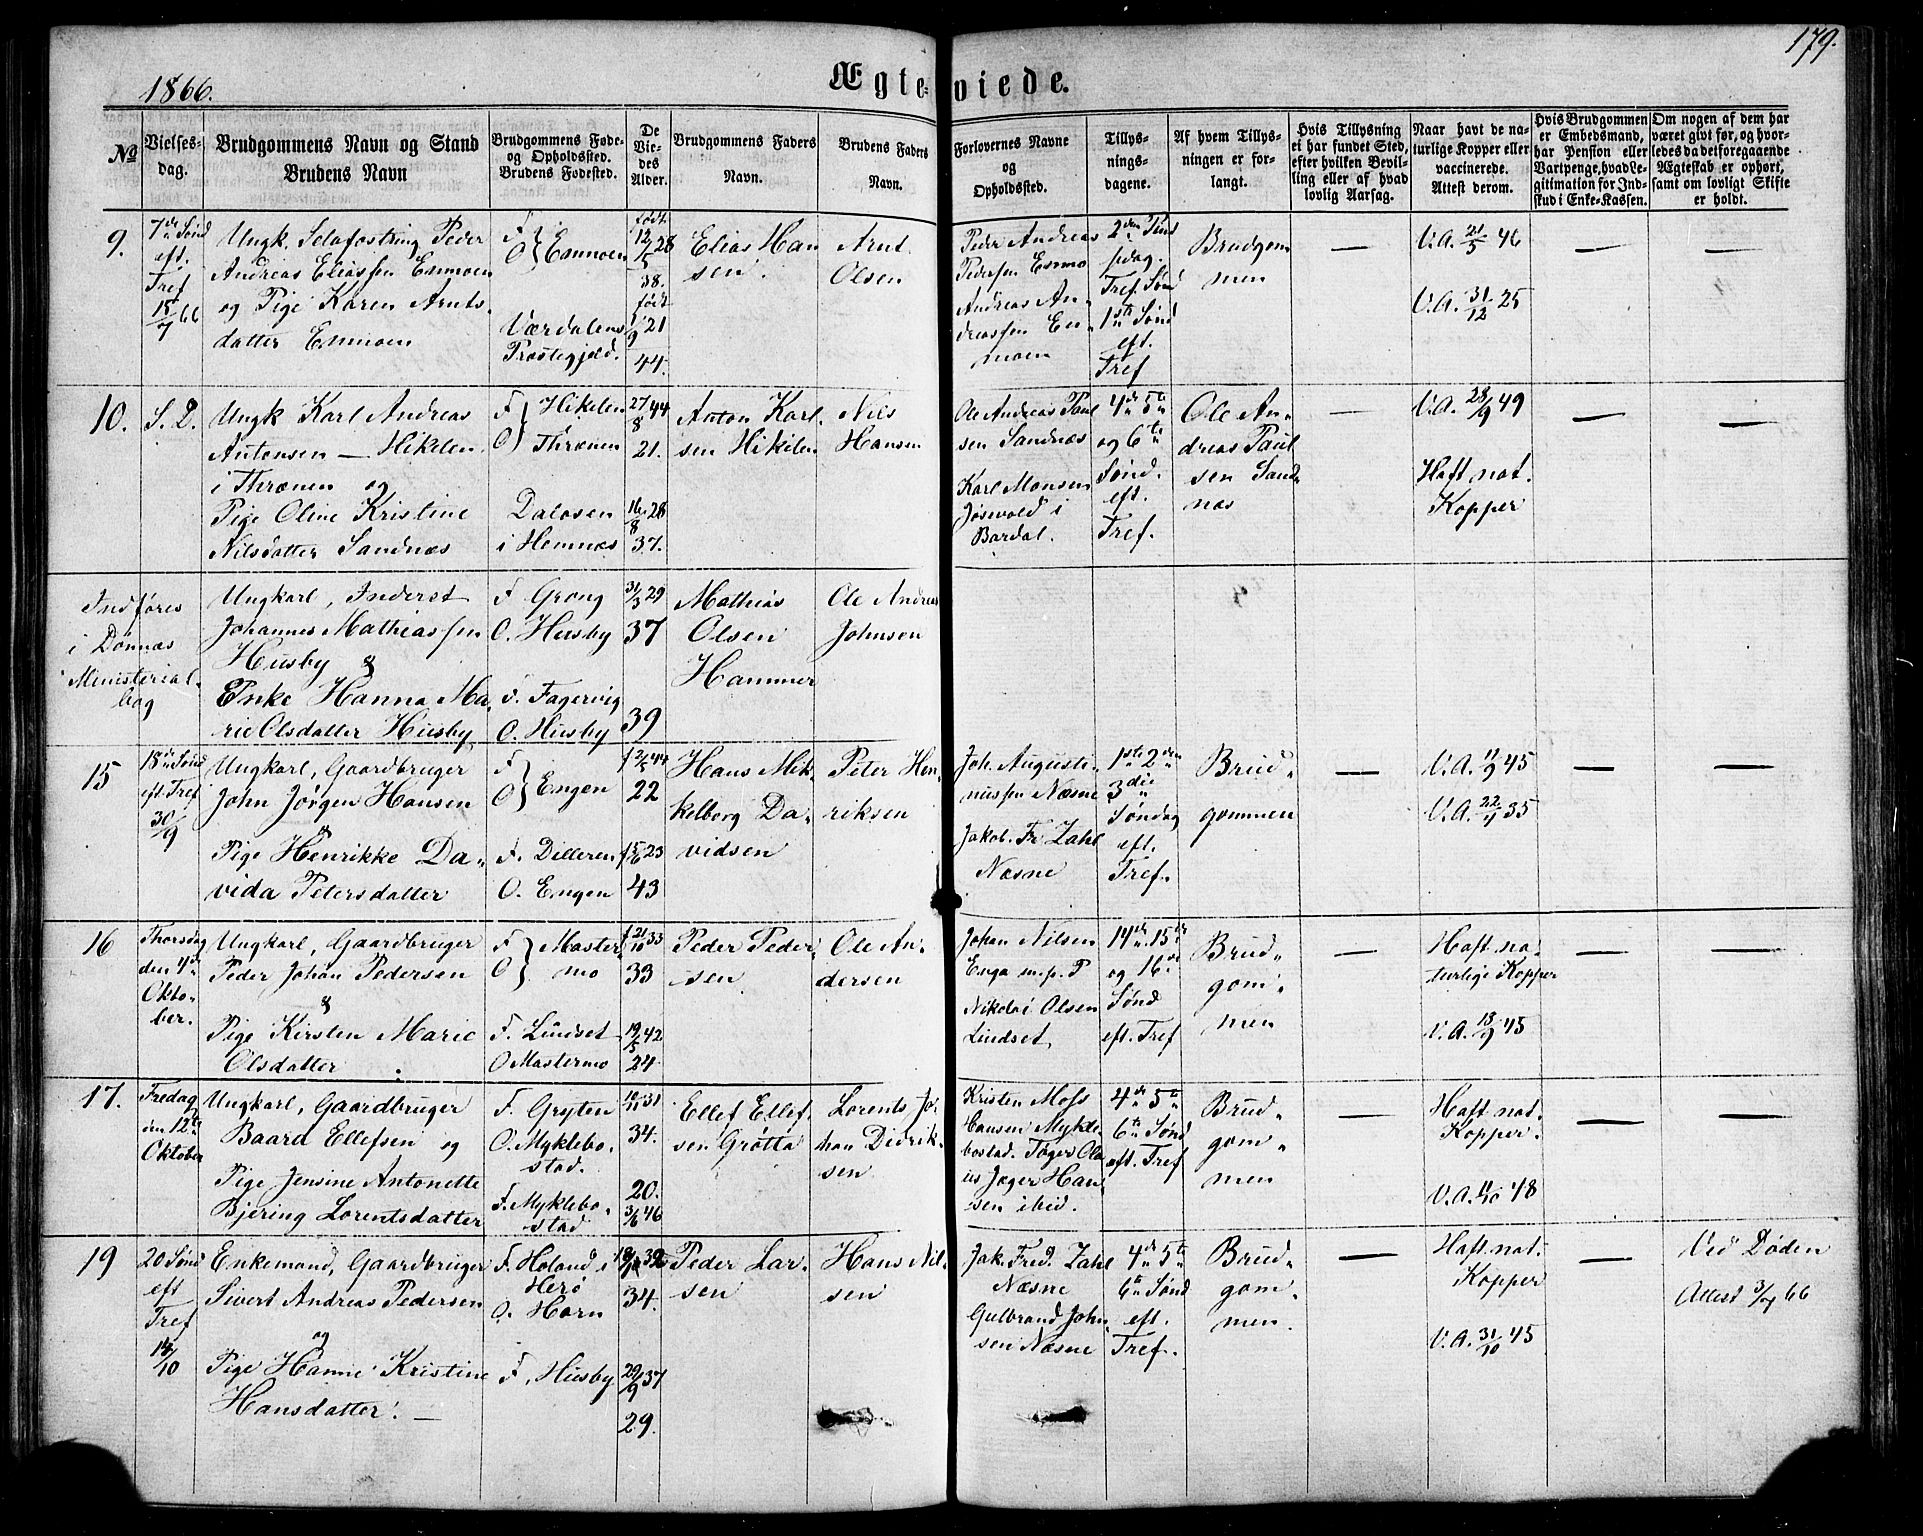 179.
1866.
Ægte-viede.
No
Vielses-dag.
Brudgommens Navn og Stand
Brudens Navn
Brudgommens Føde-
og Opholdssted.
Brudens Fødested.
De
Vie-
des
Alder.
Brudgommens Faders
Navn.
Brudens Faders
Navn.
Forlovernes Navne
og
Opholdssted.
Tillys-
nings-
dagene.
Af hvem Tillys-
ningen er for-
langt.
Hvis Tillysning
ei har fundet Sted,
efter hvilken Bevil-
ling eller af hvad
lovlig Aarsag.
Naar havt de na-
turlige Kopper eller
vaccinerede.
Attest derom.
Hvis Brudgommen
er Embedsmand,
har Pension eller
Vartpenge, hvad Le-
gitimation for Ind-
skud i Enke-Kassen.
Om nogen af dem har
været givt før, og hvor-
ledes da det foregaaende
Ægteskab er ophørt,
samt om lovligt Skifte
er holdt.
9.
7de Sønd
eft.
Tref
15/7 66
Ungk. Selvfostring Peder
Andreas Eliassen Enmoen
og Pige Karen Arnts-
datter Enmoen
F.
O
Enmoen
Værdalens
Præstegjeld.
født
12/5 28
38.
født
1/9 21
44.
Elias Han
sen.
Arnt
Olsen
Peder Andreas
Pedersen Enmo
Andreas An-
dreassen En-
moen
2den Pint
sedag.
Tref. Sønd
1ste Sønd
eft.
Tref
Brudgom
men
V.A. 21/5 46
V.A. 31/12 25
10.
S. D.
Ungk Karl Andreas
Antonsen — Hikelen
i Thrænen og
Pige Oline Kristine
Nilsdatter Sandnæs
F
O
Hikelen
i
Thrænen
Dalosen
i Hemnæs
27/8 44
21.
16/8 28
37.
Anton Karl
sen Hikelen
Nils
Hansen
Ole Andreas Paul
sen Sandnæs
Karl Monsen
Jøsvold i
Bardal.
4de 5te
og 6te
Sønd.
eft.
Tref.
Ole An-
dreas Paul
sen Sand
næs
V.A. 28/9 49
Haft nat.
Kopper
Indføres
i Dønnæs
Ministerial-
bog
Ungkarl, Inderst
Johannes Mathiassen
Husby &
Enke Hanna Ma-
rie Olsdatter Husby
F Grong
O. Husby
F. Fagervig
O. Husby
31/3 29
37
39
Mathias
Olsen
Hammer
Ole Andreas
Johnsen
15
18de Sønd
eft. Tref
30/9
Ungkarl, Gaardbruger
John Jørgen Hansen
&
Pige Henrikke Da-
vida Petersdatter
F
O
Engen
F. Dilleren
O. Engen
f 2/5 44
22
f 15/6 23
43
Hans Mik-
kelborg Da-
vidsen
Peter Hen
riksen
Joh. Augusti-
nussen Næsne
Jakob. Fr Zahl
Næsne
1ste 2den
3die
Søndag
eft.
Tref.
Brud-
gommen
V.A. 11/9 45
V.A. 22/4 35
16
Thorsdag
den 4de
Okto-
ber.
Ungkarl, Gaardbruger
Peder Johan Pedersen
&
Pige Kirsten Marie
Olsdatter
F
O
Master-
mo
F. Lindset
O Mastermo
f 21/10 33
33
19/5 42
24
Peder Peder-
sen
Ole An-
dersen
Johan Nilsen
Enga m.p.P
Nikolai Olsen
Lindset
14de 15de
og 16de
Sønd
eft. Tref
Brud-
gom-
men
Haft na-
turlige Kopper
V.A. 13/9 45
17.
Fredag
den 12te
Oktober
Ungkarl, Gaardbruger
Baard Ellefsen og
Pige Jensine Antonette
Bjering Lorentsdatter
F. Gryten
O. Myklebo-
stad.
F. Myklebo-
stad
10/11 31
34.
20.
3/6 46
Ellef Ellef
sen Grøtta
Lorents Jo-
han Didrik-
sen
Kristen Moss
Hansen Mykle-
bostad. Tøger Ola
us Jæger Han
sen ibid.
4de 5te
6te Sønd
eft. Tref
Brud-
gom-
men
Haft nat.
Kopper.
V.A. 11/10 48
19
20 Sønd
eft
Tref
14/10
Enkemand, Gaardbruger
Sivert Andreas Pedersen
og
Pige Hanne Kristine
Hansdatter. —
F. Holand i
Herø
O. Horn
F. Husby
32
34.
29/9 37
29.
Peder Lar-
sen
Hans Nil-
sen
Jak. Fred. Zahl
Næsne
Gulbrand John-
sen Næsne
4de 5te
6te Sønd
eft.
Tref.
Brud-
gom-
men.
Haft nat.
Kopper
V.A. 31/10 45
Ved Døden
Attest 3/7 66